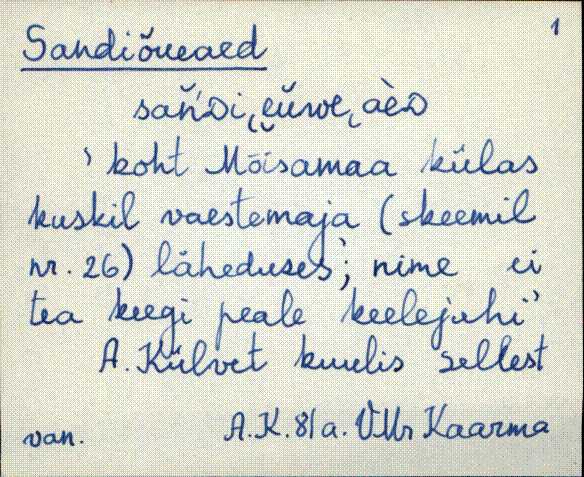 1
Sandiõueaed
koht Mõisamaa külas
kuskil vaestemaja (skeemil
nr. 26) läheduses; nime ei
tea keegi peale keelejuhi'
A. Külvet kuulis sellest
van. A.K. 81a. VMr Kaarma